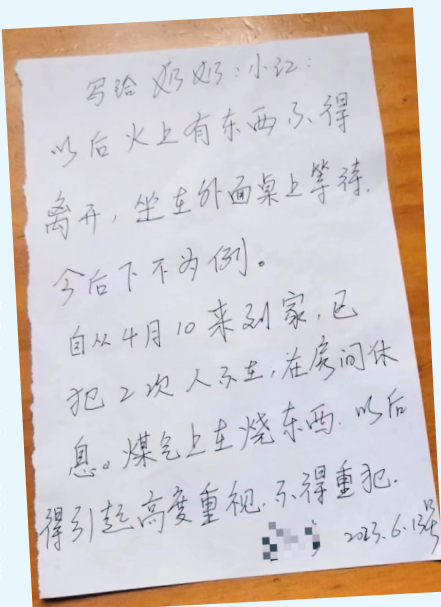 写给奶奶:小江:
以后火上有东西不得
离开,坐在外面桌上等待.
今后下不为例。
自从4月10来到家,已
犯2次人不在,在房间休
息。煤气上在烧东西.以后
得引起高度重视.不得重犯.
2023.6.13号